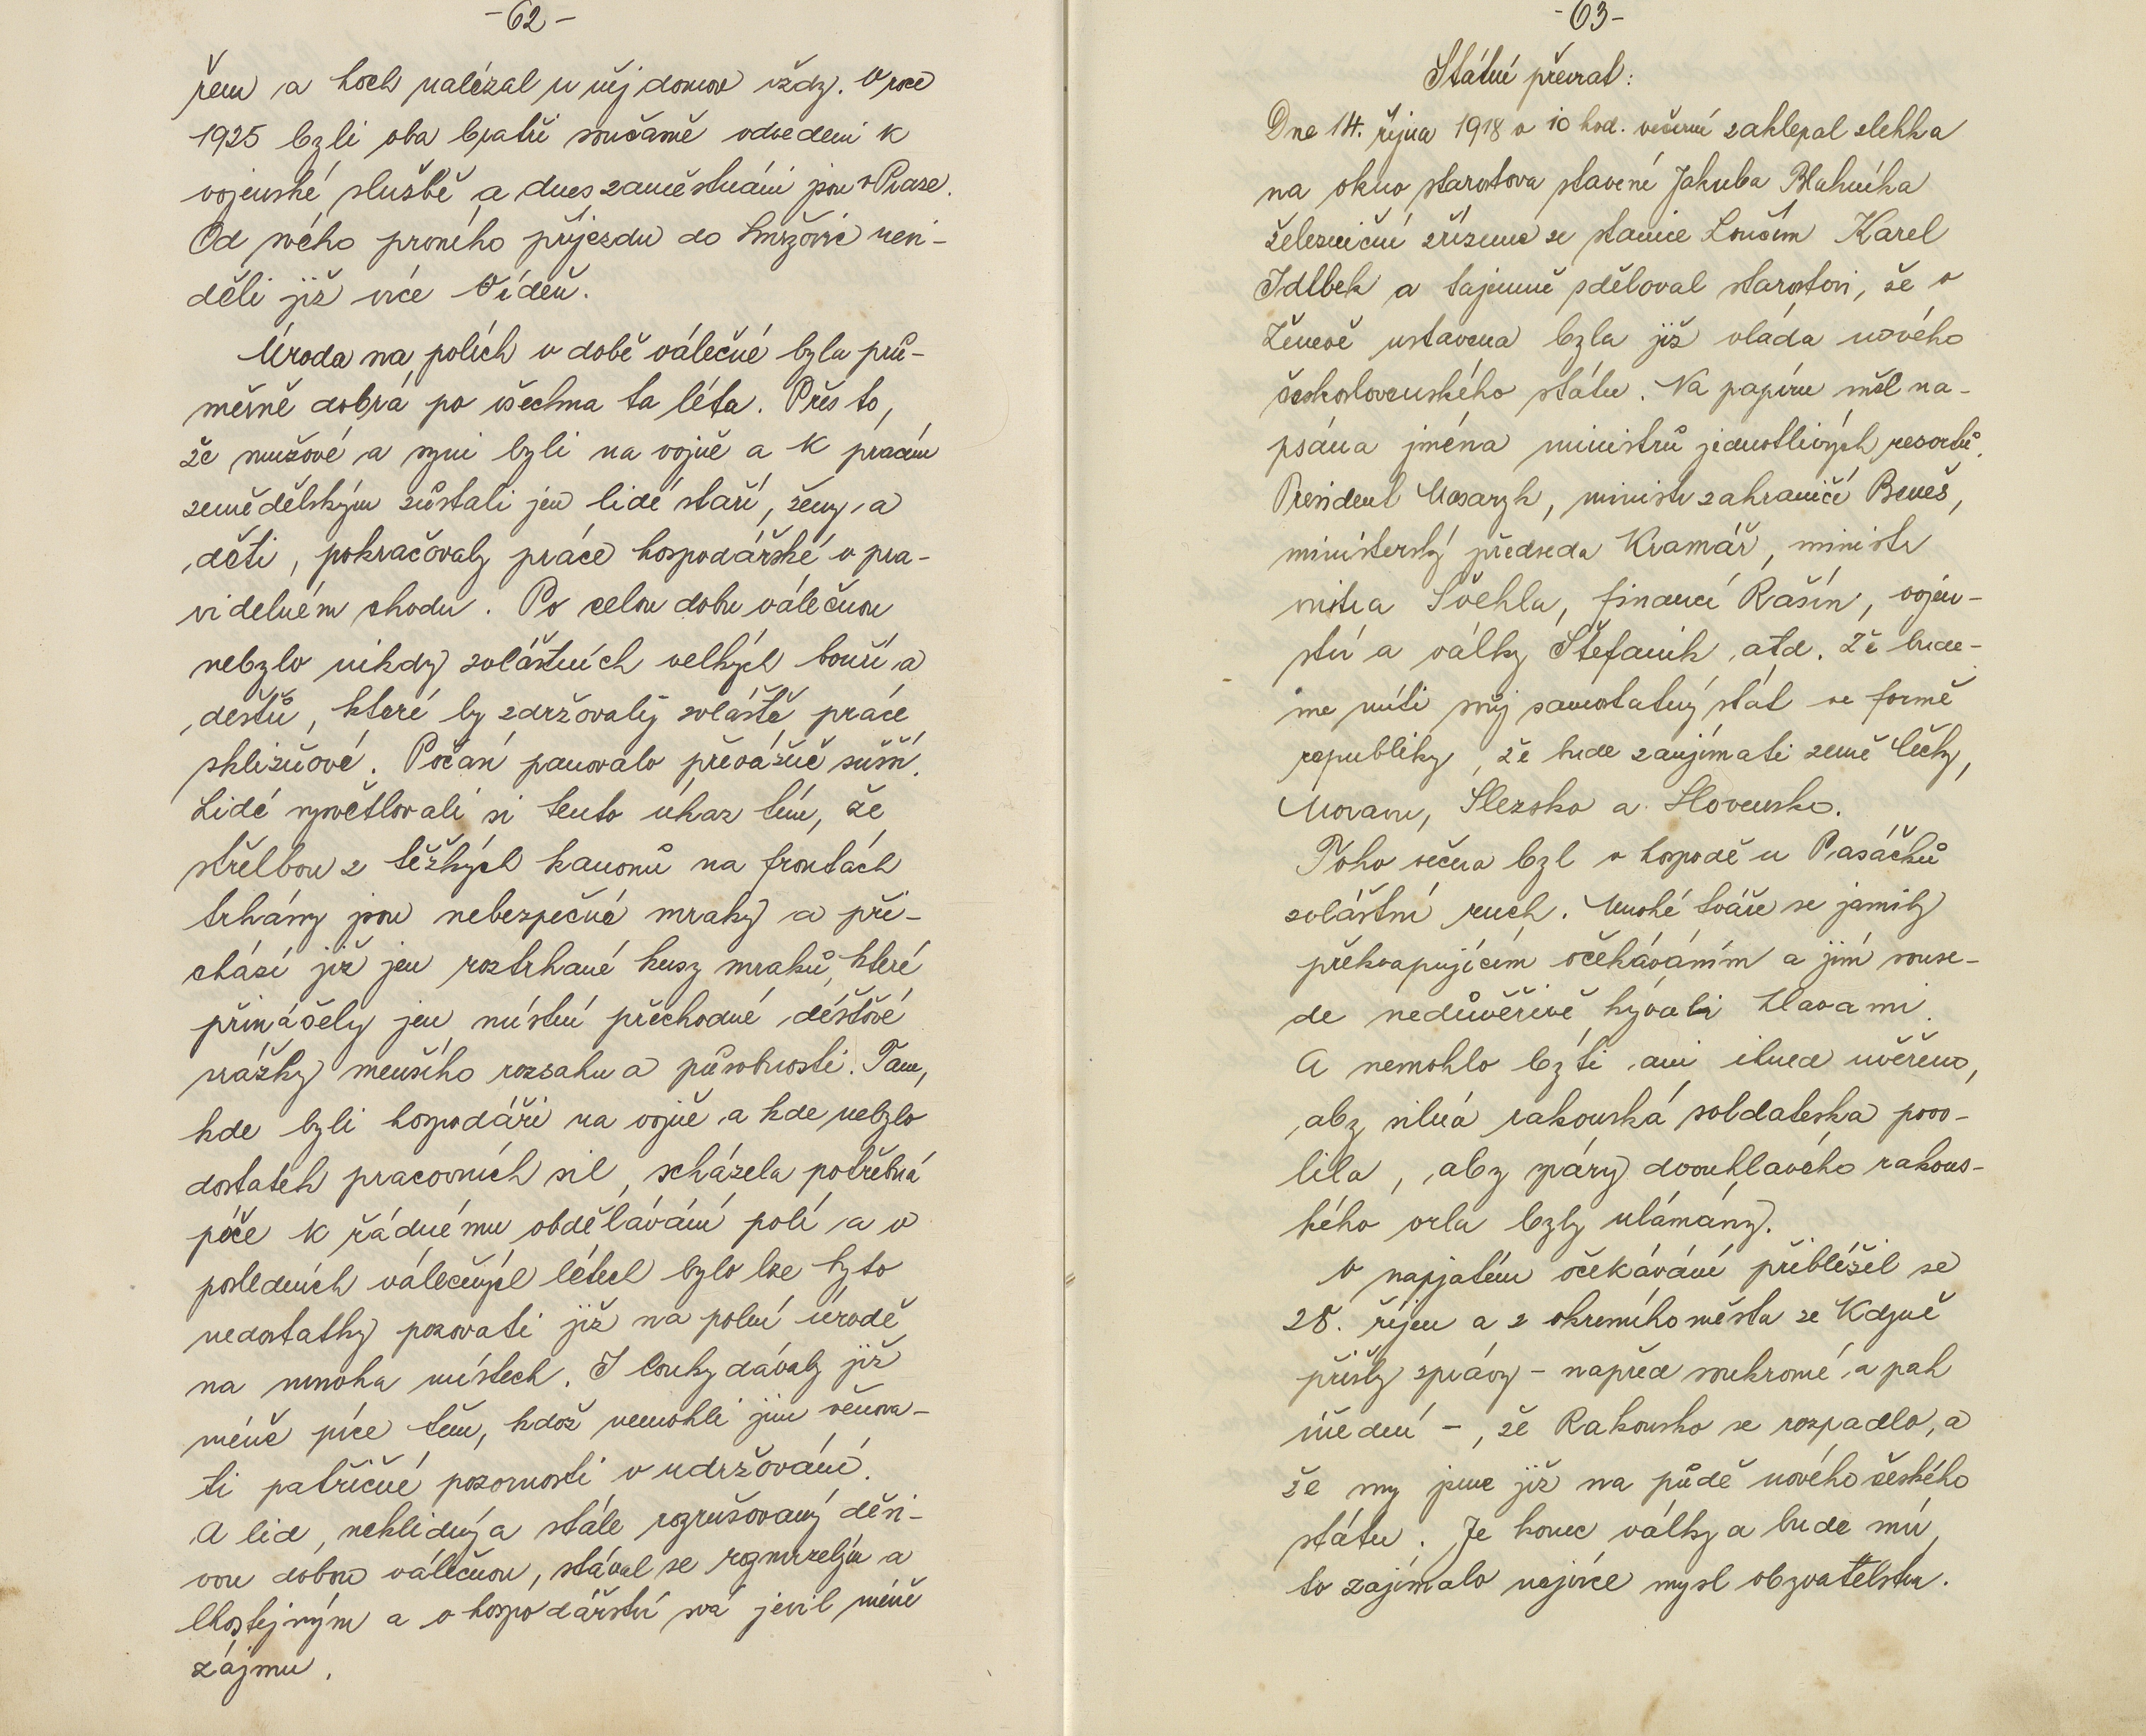 -62-
řem a hoch nalézal u něj domov vždy. V roce
1925 byli oba bratři současně odvedeni k
vojenské službě a dnes zaměstnáni jsou v Praze.
Od svého prvního příjezdu do Smržovic nevi-
děli již více Vídeň.
Úroda na polích v době válečné byla prů-
měrně dobrá po všechna ta léta. Přes to,
že mužové a syni byli na vojně a k pracím
zemědělským zůstali jen lidé staří, ženy a
děti, pokračovaly práce hospodářské v pra-
videlném chodu. Po celou dobu válečnou
nebylo nikdy zvláštních velkých bouří a
dešťů, které by zdržovaly zvláště práce
sklizňové. Počasí panovalo převážně sušší.
Lidé vysvětlovali si tento úkaz tím, že
střelbou z těžkých kanonů na frontách
trhány jsou nebezpečné mraky a při-
chází již jen roztrhané kusy mraků, které
přinášely jen místní přechodné déšťové
srážky menšího rozsahu a působnosti. Tam,
kde byli hospodáři na vojně a kde nebylo
dostatek pracovních sil, scházela potřebná
péče k řádnému obdělávání polí a v
posledních válečných létech bylo lze tyto
nedostatky pozorovati již na polní úrodě
na mnoha místech. I louky dávaly již
méně píce těm, kdož nemohli jim věnova-
ti patřičné pozornosti v udržování.
A lid, neklidný a stále rozrušovaný děsi-
vou dobou válečnou, stával se rozmrzelým a
lhostejným a o hospodářství svá jevil méně
zájmu.
-63-
Státní převrat:
Dne 14. října 1918 v 10 hod. večerní zaklepal zlehka
na okno starostova stavení Jakuba Blahníka
železniční zřízenec ze stanice Loučim Karel
Idlbek a tajemně sděloval starostovi, že v
Ženevě ustavena byla již vláda nového
československého státu. Na papíru měl na-
psána jména ministrů jednotlivých resortů.
President Masaryk, ministr zahraničí Beneš,
ministerský předseda Kramář, ministr
vnitra Švehla, financí Rašín, vojen-
ství a války Štefanik atd. Že bude-
me míti svůj samostatný stát ve formě
republiky, že bude zaujímati země Čechy,
Moravu, Slezsko a Slovensko.
Toho večera byl v hospodě u Pasáčků
zvláštní ruch. Mnohé tváře se jasnily
překvapujícím očekáváním a jiní souse-
dé nedůvěřivě kývali hlavami.
A nemohlo býti ani ihned uvěřeno,
aby silná rakouská soldateska povo-
lila, aby spáry dvouhlavého rakous-
kého orla byly ulámány.
V napjatém očekávání přiblížil se
28. říjen a z okresního města ze Kdyně
přišly zprávy - napřed soukromé a pak
úřední -, že Rakousko se rozpadlo, a
že my jsme již na půdě nového českého
státu. Je konec války a bude mír,
to zajímalo nejvíce mysl obyvatelstva.